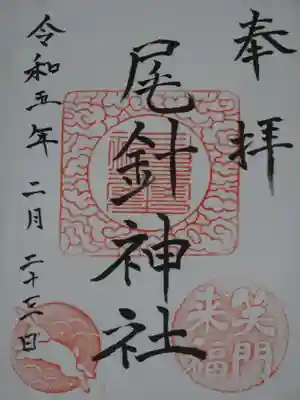 奉拝
尾針神社
令和五年 二月 二十三日
笑門
来福